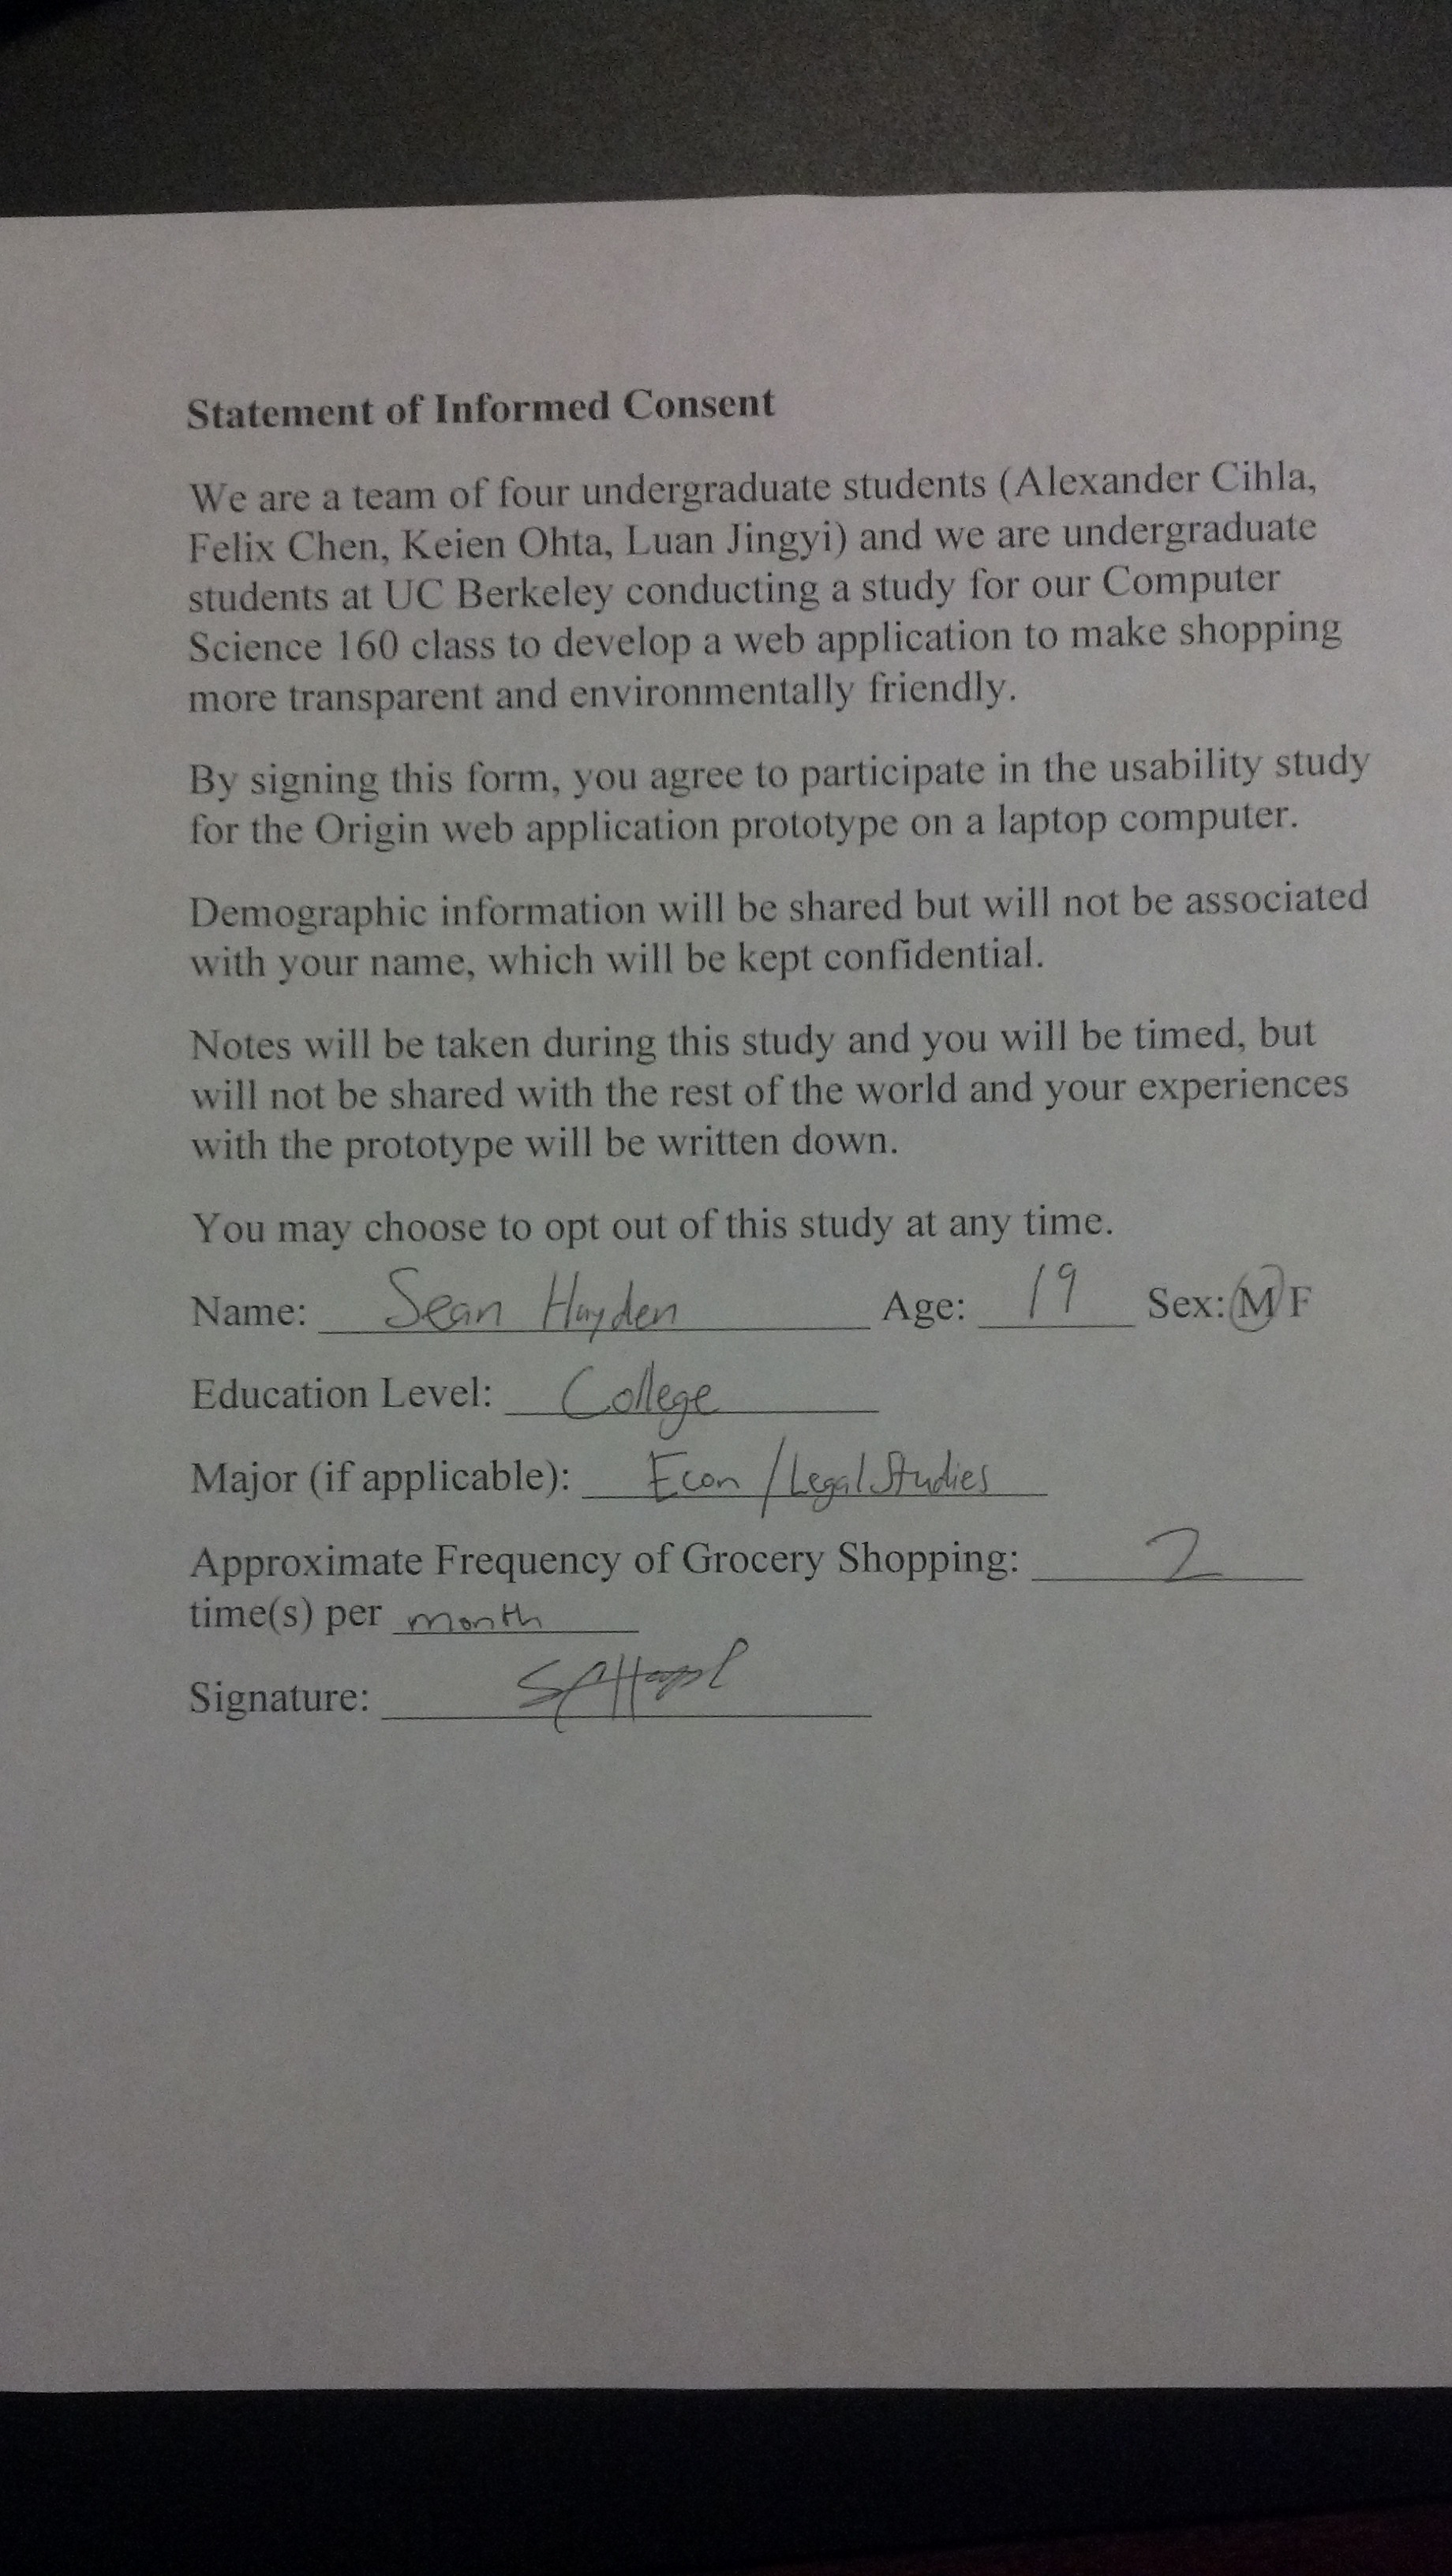 Statement of Informed Consent
We are a team of four undergraduate students (Alexander Cihla,
Felix Chen, Keien Ohta, Luan Jingyi) and we are undergraduate
students at UC Berkeley conducting a study for our Computer
Science 160 class to develop a web application to make shopping
more transparent and environmentally friendly.
By signing this form, you agree to participate in the usability study
for the Origin web application prototype on a laptop computer.
Demographic information will be shared but will not be associated
with your name, which will be kept confidential.
Notes will be taken during this study and you will be timed, but
will not be shared with the rest of the world and your experiences
with the prototype will be written down.
You may choose to opt out of this study at any time.
Name: Sean Hayden Age: 19 Sex: M F
Education Level: College
Major (if applicable): Econ / Legal Studies
Approximate Frequency of Grocery Shopping: 2
time(s) per month
Signature: